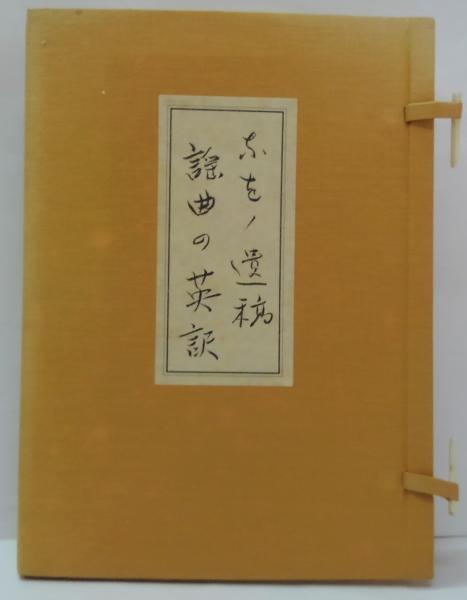 なをノ遺稿
謡曲の英訳